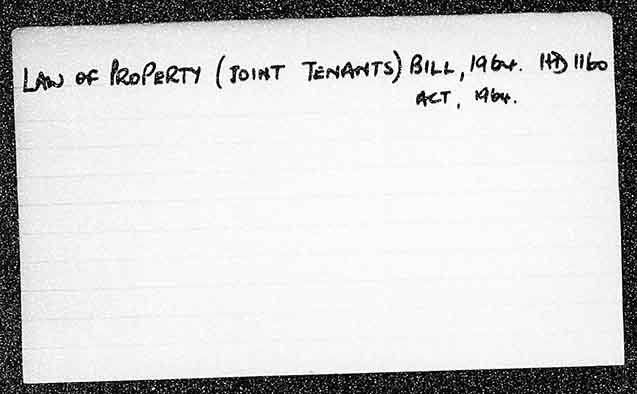 LAW OF PROPERTY (JOINT TENANTS) BILL, 1964. HD 1160
ACT, 1964.